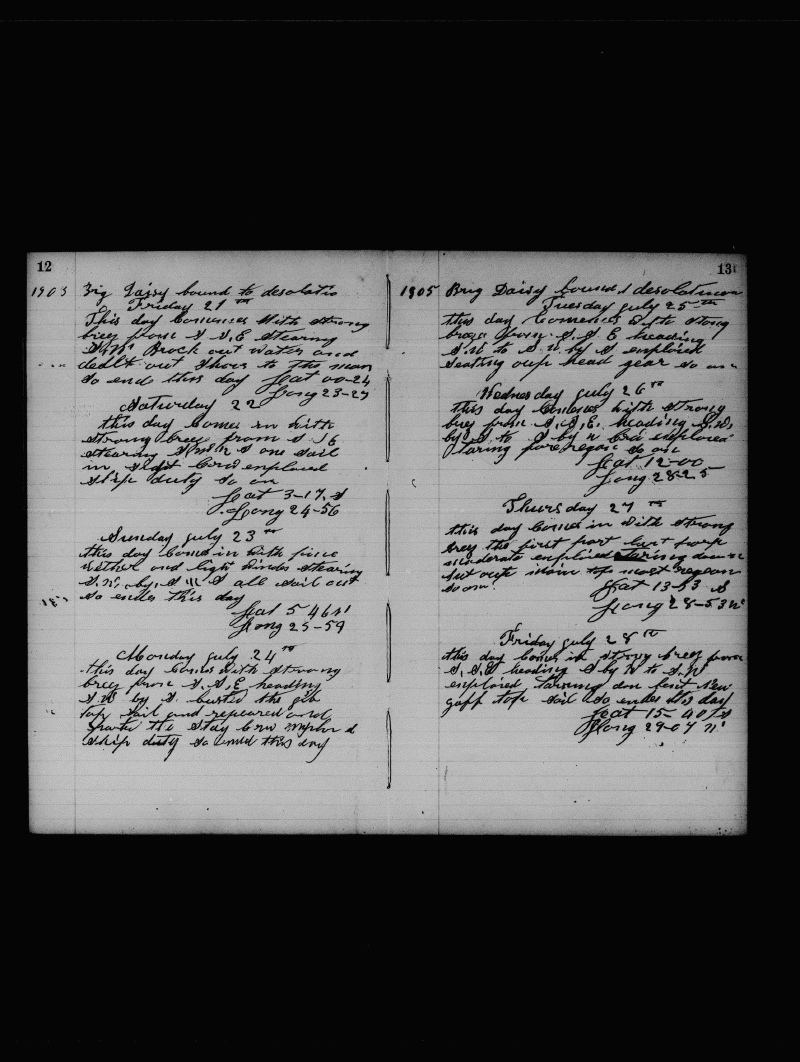 12
1905 Brig Daisy bound to desolatio
Friday 21 st
This day Comences With strong
breez from S S, E stearing
S, W, Brock out Water and
dealt out Shoes to the man
So end this day Lat 00-24
Long 23-27
Saturday 22
this day Comes in with
strong breez from S S E
stearing S one sail
in sight Crew employed
ship duty so on
Lat 3-17, S
Long 24-56
Sunday july 23 rd
this day Comes in with fine
wether and light Windes stearing
S. W. by, S all sail out
So endes this day
Lat 5 46
Long 25-59
Monday july 24 th
this day Comes with strong
breez from S. S, E heading
S W by S. busted the gib
top sail and repeared and
the stay Crew
Ship duty So endes this day
13
1905 Brig Daisy bound desolation
Tuesday july 25 th
this day Comences with strong
breze from. S. S. E heading
S. W to S. W. by S employed
seating oup head gear so on
Wednesday july 26 th
this day Comences with strong
breez from S, S, E, heading S, W,
by S to S by W Crew employed
taring fore regon so on
Lat 12-00
Long 28-25
Thursday 27 th
this day Comes in with strong
breez the first part last part
moderate employed taring down
main top mast regeon
so on. Lat 13-53 S
Long 28-53 W
Friday july 28 th
this day Comes in strong breez from
S, S, E heading S by W to S, W
employed tarring don bent New
gaff top sail so endes this day
Lat 15-40 S
Long 29-07 W